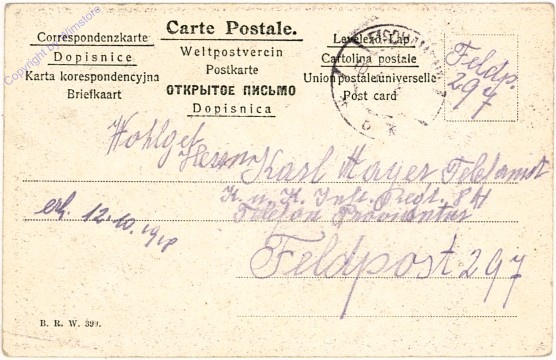 Carte Postale.
Correspondenzkarte
Dopisnice
Karta korespondencyjna
Briefkaart
Weltpostverein
Postkarte
ОТКРЫТОЕ ПИСЬМО
Dopisnica
Levelező-Lap
Cartolina postale
Union postale universelle
Post card
Feldp.
297
Wohlgeb
Herrn Karl Mayer
K. u. K. Inft. Regt. 84
Telefon
Feldpost 297
erh. 12.10.1918
B. R. W. 399.
Copyright by Filmstore